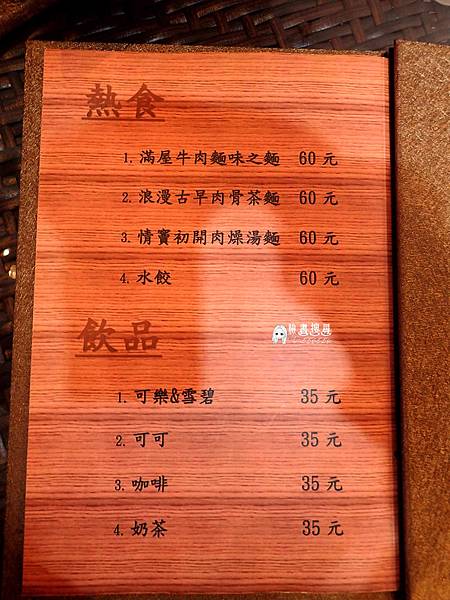 熱食
1. 滿屋牛肉麵味之麵 60 元
2. 浪漫古早肉骨茶麵 60 元
3. 情竇初開肉燥湯麵 60 元
4. 水餃 60 元
飲品
1. 可樂&雪碧 35 元
2. 可可 35 元
3. 咖啡 35 元
4. 奶茶 35 元